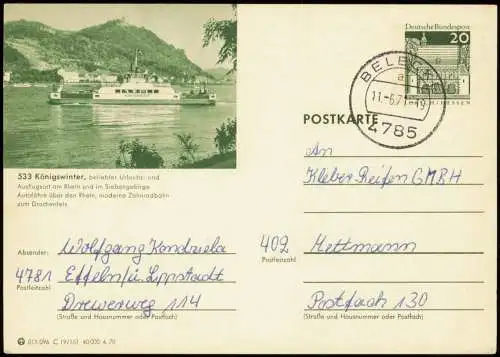 Deutsche Bundespost
20
BELECKE
a
11.-6.71-19
4785
POSTKARTE
533 Königswinter, beliebter Urlaubs- und
Ausflugsort am Rhein und im Siebengebirge
Autofähre über den Rhein, moderne Zahnradbahn
zum Drachenfels
An
Kleber Reifen GMBH
402 Mettmann
Postleitzahl
Postfach 130
(Straße und Hausnummer oder Postfach)
Absender: Wolfgang Kondziela
4781 Effeln/ü. Lippstadt
Postleitzahl
Drewerweg 114
(Straße und Hausnummer oder Postfach)
40 000 6.70